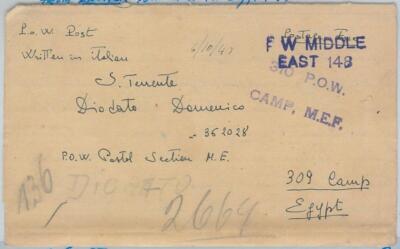 P.o.W. Post
Postage Free
Written in italian
6/10/43
P W MIDDLE
EAST 148
310 P.O.W.
CAMP, M.E.F.
S. Tenente
Diodato Domenico
362028
P.O.W. Postal Section M.E.
309 Camp
Egypt
A36
DIODATO
2664